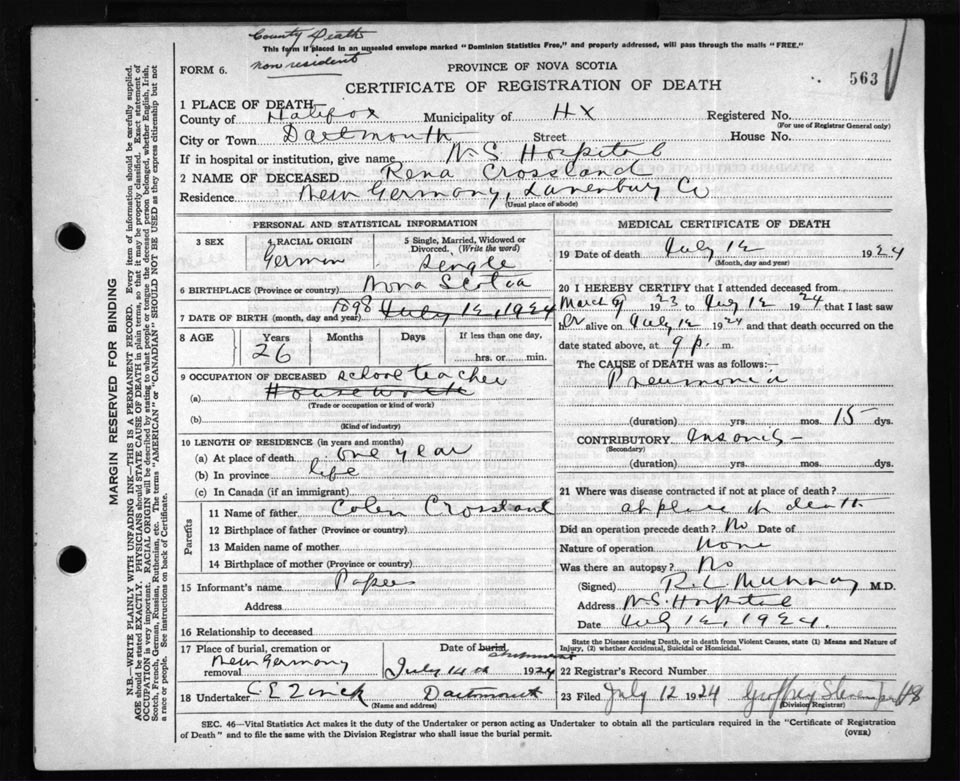 County Death
This form if placed in an unsealed envelope marked "Dominion Statistics Free," and properly addressed, will pass through the mails "FREE."
non resident
FORM 6.
PROVINCE OF NOVA SCOTIA
563
CERTIFICATE OF REGISTRATION OF DEATH
1 PLACE OF DEATH—
County of Halifax Municipality of HX Registered No.
(For use of Registrar General only)
City or Town Dartmouth Street House No.
If in hospital or institution, give name N.S. Hospital
2 NAME OF DECEASED Rena Crossland
Residence New Germany, Lunenburg Co
(Usual place of abode)
PERSONAL AND STATISTICAL INFORMATION
3 SEX 4 RACIAL ORIGIN 5 Single, Married, Widowed or Divorced. (Write the word)
German Single
6 BIRTHPLACE (Province or country) Nova Scotia
7 DATE OF BIRTH (month, day and year) 1898 July 12, 1924
8 AGE Years Months Days If less than one day,
26 hrs. or min.
9 OCCUPATION OF DECEASED School teacher
(a) Housework
(Trade or occupation or kind of work)
(b)
(Kind of industry)
10 LENGTH OF RESIDENCE (in years and months)
(a) At place of death one year
(b) In province life
(c) In Canada (if an immigrant)
Parents
11 Name of father Colen Crossland
12 Birthplace of father (Province or country)
13 Maiden name of mother
14 Birthplace of mother (Province or country)
15 Informant's name Papers
Address
16 Relationship to deceased
17 Place of burial, cremation or removal New Germany
Date of burial shipment
July 14 1924
18 Undertaker Dartmouth
(Name and address)
MEDICAL CERTIFICATE OF DEATH
19 Date of death July 12 1924
(Month, day and year)
20 I HEREBY CERTIFY that I attended deceased from
March 9 1923 to July 12 1924 that I last saw
her alive on July 12 1924 and that death occurred on the
date stated above, at 9 p. m.
The CAUSE of DEATH was as follows:—
Pneumonia
(duration) yrs. mos. 15 dys.
CONTRIBUTORY Insanity
(Secondary)
(duration) yrs. mos. dys.
21 Where was disease contracted if not at place of death?
at place of death
Did an operation precede death? No Date of
Nature of operation None
Was there an autopsy? No
(Signed) R. L. Murray M.D.
Address N.S. Hospital
Date July 12, 1924.
State the Disease causing Death, or in death from Violent Causes, state (1) Means and Nature of
Injury, (2) whether Accidental, Suicidal or Homicidal.
22 Registrar's Record Number
23 Filed July 12 1924 Geoffrey
(Division Registrar)
SEC. 46—Vital Statistics Act makes it the duty of the Undertaker or person acting as Undertaker to obtain all the particulars required in the "Certificate of Registration
of Death" and to file the same with the Division Registrar who shall issue the burial permit. (OVER)
MARGIN RESERVED FOR BINDING
N.B.—WRITE PLAINLY WITH UNFADING INK—THIS IS A PERMANENT RECORD. Every item of information should be carefully supplied.
AGE should be stated EXACTLY. PHYSICIANS should STATE CAUSE OF DEATH in plain terms, so that it may be properly classified. Exact statement of
OCCUPATION is very important. RACIAL ORIGIN will be described by stating to what people or tongue the deceased person belonged, whether English, Irish,
Scotch, French, German, Russian, Ruthenian, etc. The terms "AMERICAN" or "CANADIAN" SHOULD NOT BE USED as they express citizenship but not
a race or people. See instructions on back of Certificate.